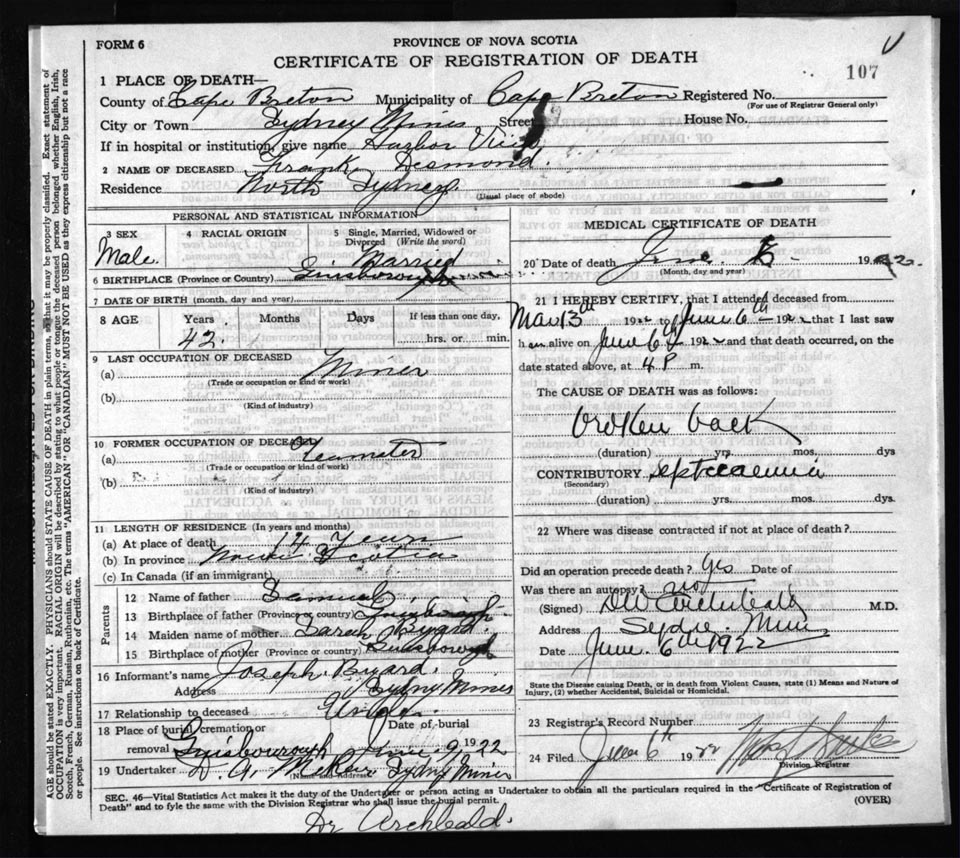 FORM 6
PROVINCE OF NOVA SCOTIA
CERTIFICATE OF REGISTRATION OF DEATH
107
1 PLACE OF DEATH—
County of Cape Breton Municipality of Cape Breton Registered No.
(For use of Registrar General only)
City or Town Sydney Mines Street House No.
If in hospital or institution, give name Harbor View
2 NAME OF DECEASED Frank Desmond.
Residence North Sydney.
(Usual place of abode)
PERSONAL AND STATISTICAL INFORMATION
3 SEX
Male.
4 RACIAL ORIGIN
5 Single, Married, Widowed or Divorced (Write the word)
Married
6 BIRTHPLACE (Province or Country)
7 DATE OF BIRTH (month, day and year)
8 AGE Years Months Days If less than one day,
42. hrs. or min.
9 LAST OCCUPATION OF DECEASED
(a) Miner
(Trade or occupation or kind or work)
(b)
(Kind of industry)
10 FORMER OCCUPATION OF DECEASED
(a) Teamster
(Trade or occupation or kind of work)
(b)
(Kind of industry)
11 LENGTH OF RESIDENCE (In years and months)
(a) At place of death 14 Years
(b) In province Nova Scotia
(c) In Canada (if an immigrant)
Parents
12 Name of father Samuel
13 Birthplace of father (Province or country)
14 Maiden name of mother Sarah Byard.
15 Birthplace of mother (Province or country)
16 Informant's name Joseph Byard.
Address Sydny Mines
17 Relationship to deceased Uncle.
18 Place of burial, cremation or removal Guisbourough Date of burial June 9 1922
19 Undertaker D. A. Sydny Mines
(Name and Address)
MEDICAL CERTIFICATE OF DEATH
20 Date of death June 192
(Month, day and year)
21 I HEREBY CERTIFY, that I attended deceased from
Mar 13th 1922 to June 6th 1922 that I last saw
h im alive on June 6th 1922 and that death occurred, on the
date stated above, at 4 P m.
The CAUSE OF DEATH was as follows:
broken back
(duration) yrs. mos. dys
CONTRIBUTORY septicaemia
(Secondary)
(duration) yrs. mos. dys.
22 Where was disease contracted if not at place of death?
Did an operation precede death? yes Date of
Was there an autopsy? no
(Signed) M.D.
Address Sydney Mines
Date June. 6th 1922
State the Disease causing Death, or in deaths from Violent Causes, state (1) Means and Nature of Injury, (2) whether Accidental, Suicidal or Homicidal.
23 Registrar's Record Number
24 Filed June 6th 1922
Division Registrar
SEC. 46—Vital Statistics Act makes it the duty of the Undertaker or person acting as Undertaker to obtain all the particulars required in the "Certificate of Registration of Death" and to fyle the same with the Division Registrar who shall issue the burial permit.
(OVER)
Dr Archbald.
AGE should be stated EXACTLY. PHYSICIANS should STATE CAUSE OF DEATH in plain terms, so that it may be properly classified. Exact statement of
OCCUPATION is very important. RACIAL ORIGIN will be described by stating to what people or tongue the deceased person belonged whether English, Irish,
Scotch, French, German, Russian, Ruthenian, etc. The terms "AMERICAN" OR "CANADIAN" MUST NOT BE USED as they express citizenship but not a race
or people. See instructions on back of Certificate.